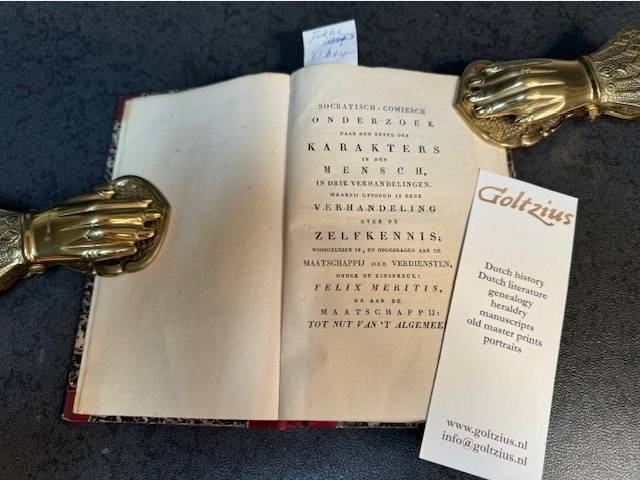 SOCRATISCH-COMIESCH
ONDERZOEK
NAAR DEN ZETEL DES
KARAKTERS
IN DEN
MENSCH,
IN DRIE VERHANDELINGEN.
WAARBIJ GEVOEGD IS EENE
VERHANDELING
OVER DE
ZELFKENNIS;
VOORGELEZEN IN, EN OPGEDRAGEN AAN DE
MAATSCHAPPIJ DER VERDIENSTEN,
ONDER DE ZINSPREUK:
FELIX MERITIS,
EN AAN DE
MAATSCHAPPIJ:
TOT NUT VAN 'T ALGEMEE
Goltzius
Dutch history
Dutch literature
genealogy
heraldry
manuscripts
old master prints
portraits
www.goltzius.nl
info@goltzius.nl